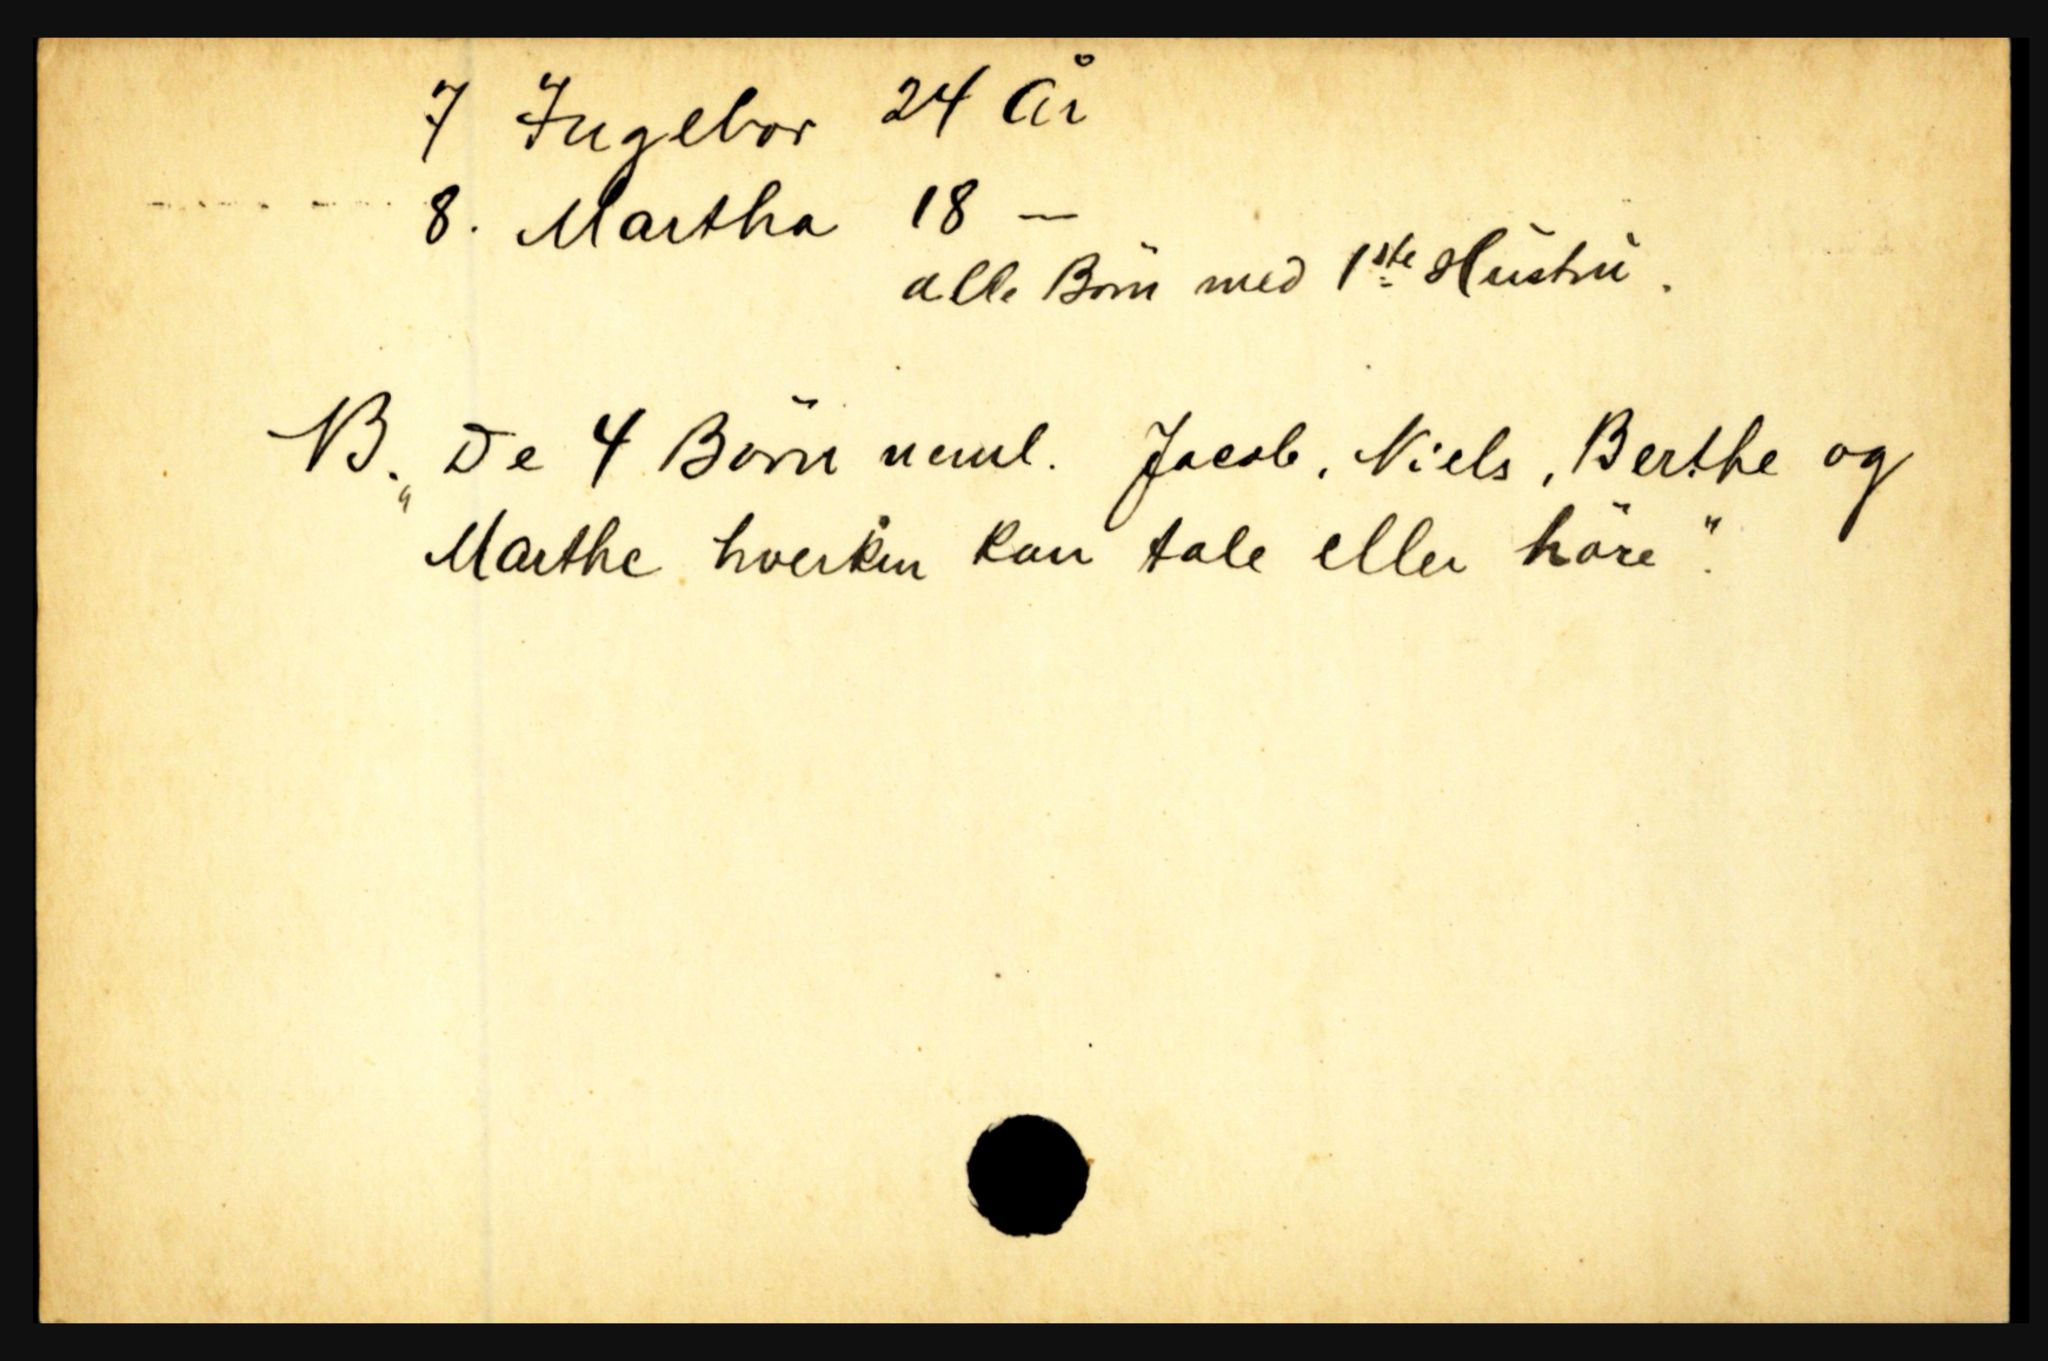 7 Ingebor 24 År
8. Martha 18 —
alle Börn med 1ste Hustru.
NB. „De 4 Börn neml. Jacob, Niels, Berthe og
Marthe hverken kan tale eller höre".